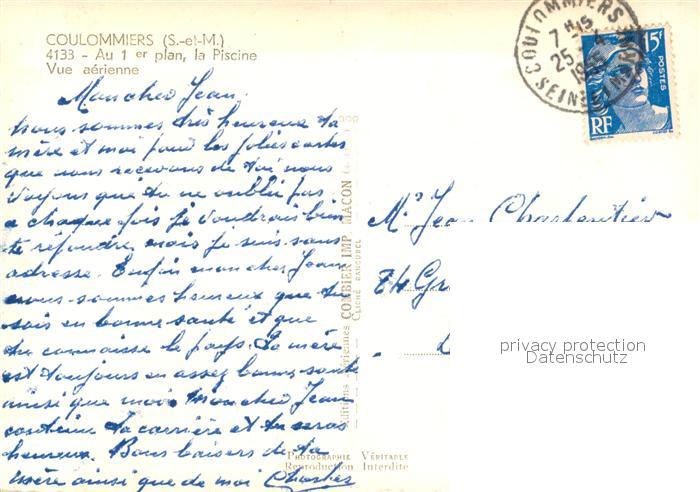 COULOMMIERS (S.-et-M.)
4133 - Au 1er plan, la Piscine
Vue aérienne
COULOMMIERS
7 H 15
25
SEINE ET MARNE
15F
POSTES
RF
Mon cher Jean
Nous sommes très heureux ta
mère et moi pour les jolies cartes
que nous recevons de toi nous
voyons que tu ne oublie pas
a chaque fois je voudrais bien
te répondre mais je suis sans
adresse. Enfin mon cher Jean
nous sommes heureux que tu
sois en bonne santé et que
tu connaisse le pays. Ta mère
est toujours en assez bonne santé
ainsi que moi. Mon cher Jean
continue ta carrière et tu seras
heureux. Bons baisers de ta
mère ainsi que de moi Charles
Mr Jean Charpentier
74 Gr
Editions Aériennes COMBIER IMP. MACON
CLICHÉ RANCUREL
PHOTOGRAPHIE VÉRITABLE
Reproduction Interdite
privacy protection
Datenschutz